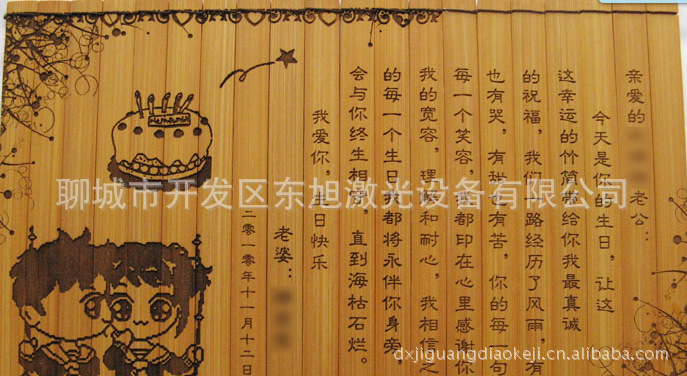 亲爱的 老公：
今天是你的生日，让这
这幸运的竹简带给你我最真诚
的祝福，我们一路经历了风雨，有
也有哭，有甜也有苦，你的每一句
每一个笑容，都印在心里感谢你
我的宽容，理解和耐心，我相信之
的每一个生日我都将永伴你身旁，
会与你终生相守，直到海枯石烂。
我爱你，生日快乐
老婆：
二零一零年十一月十二日
聊城市开发区东旭激光设备有限公司
dxjiguangdiaokeji.cn.alibaba.com